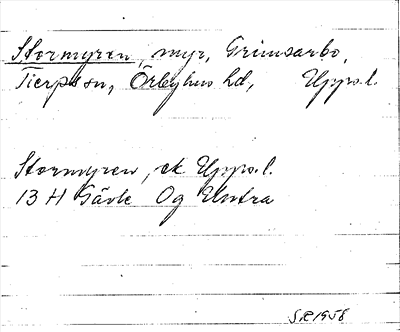 Stormyren, myr, Grimsarbo,
Tierps sn, Örbyhus hd, Upps.l.
Stormyren, ek Upps.l.
13 H Gävle Og Untra
S.R 1958